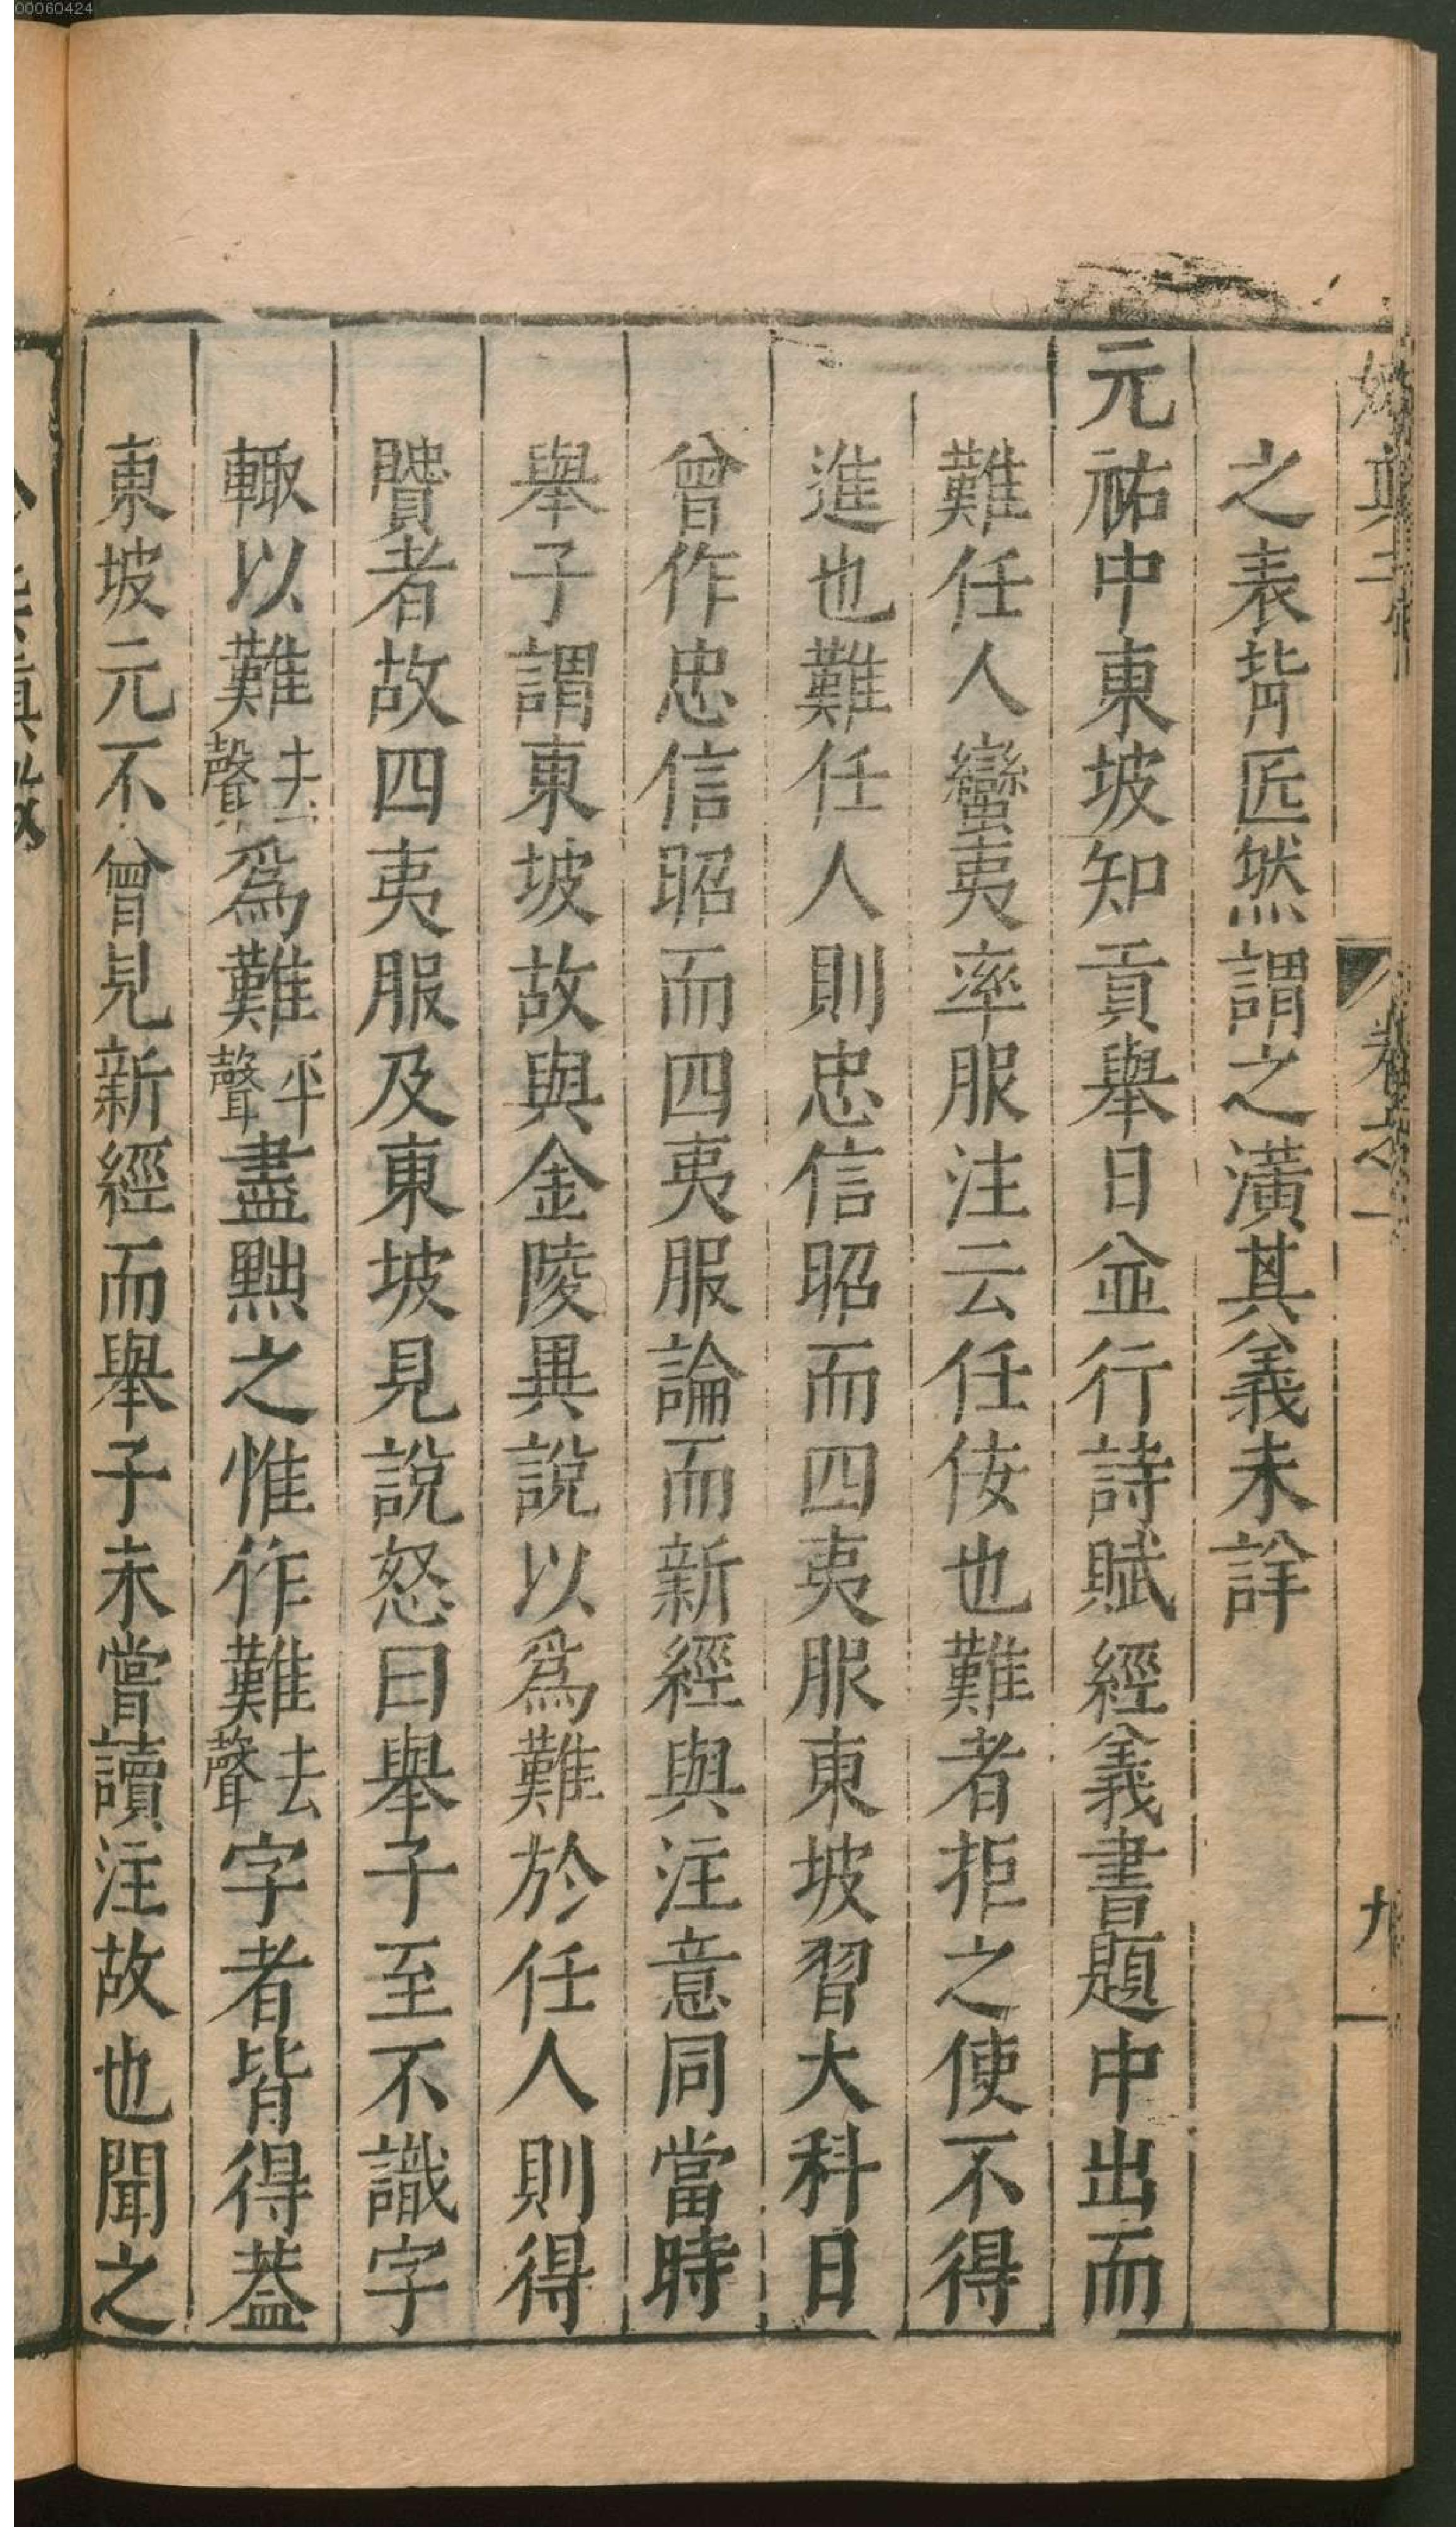 00060424
之表背匠然謂之潢其義未詳
元祐中東坡知貢舉日並行詩賦經義書題中出而
難任人蠻夷率服注云任佞也難者拒之使不得
進也難任人則忠信昭而四夷服東坡習大科日
曾作忠信昭而四夷服論而新經與注意同當時
舉子謂東坡故與金陵異說以為難於任人則得
賢者故四夷服及東坡見說怒曰舉子至不識字
輙以難去聲為難平聲盡黜之惟作難去聲字者皆得葢
東坡元不曾見新經而舉子未嘗讀注故也聞之